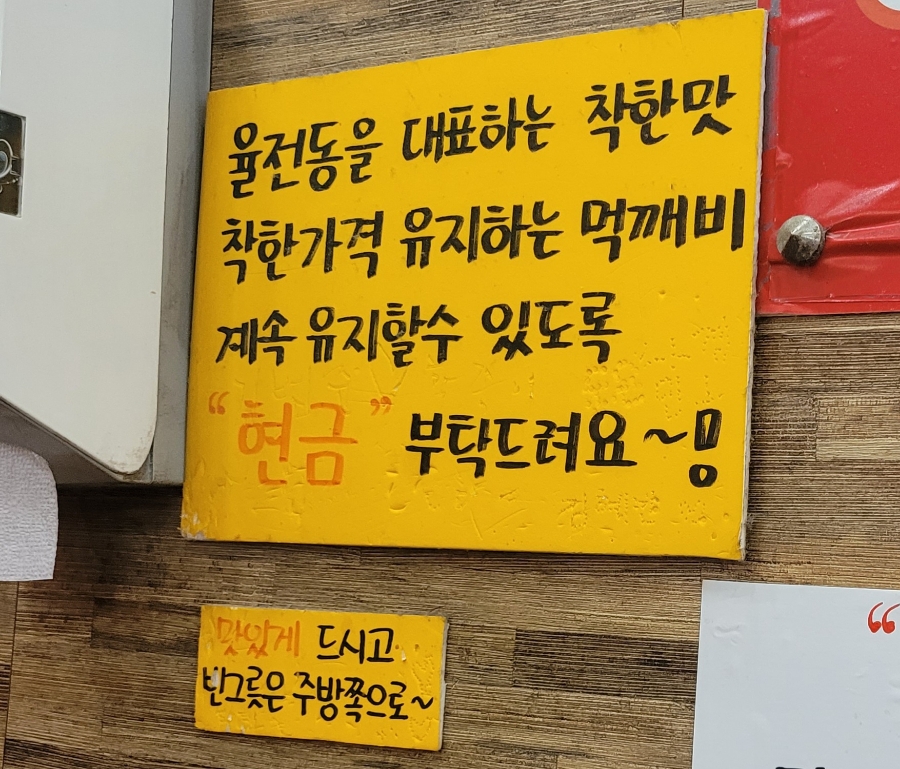 율전동을 대표하는 착한맛
착한가격 유지하는 먹깨비
계속 유지할수 있도록
“현금” 부탁드려요~!!
맛있게 드시고
빈그릇은 주방쪽으로~
“